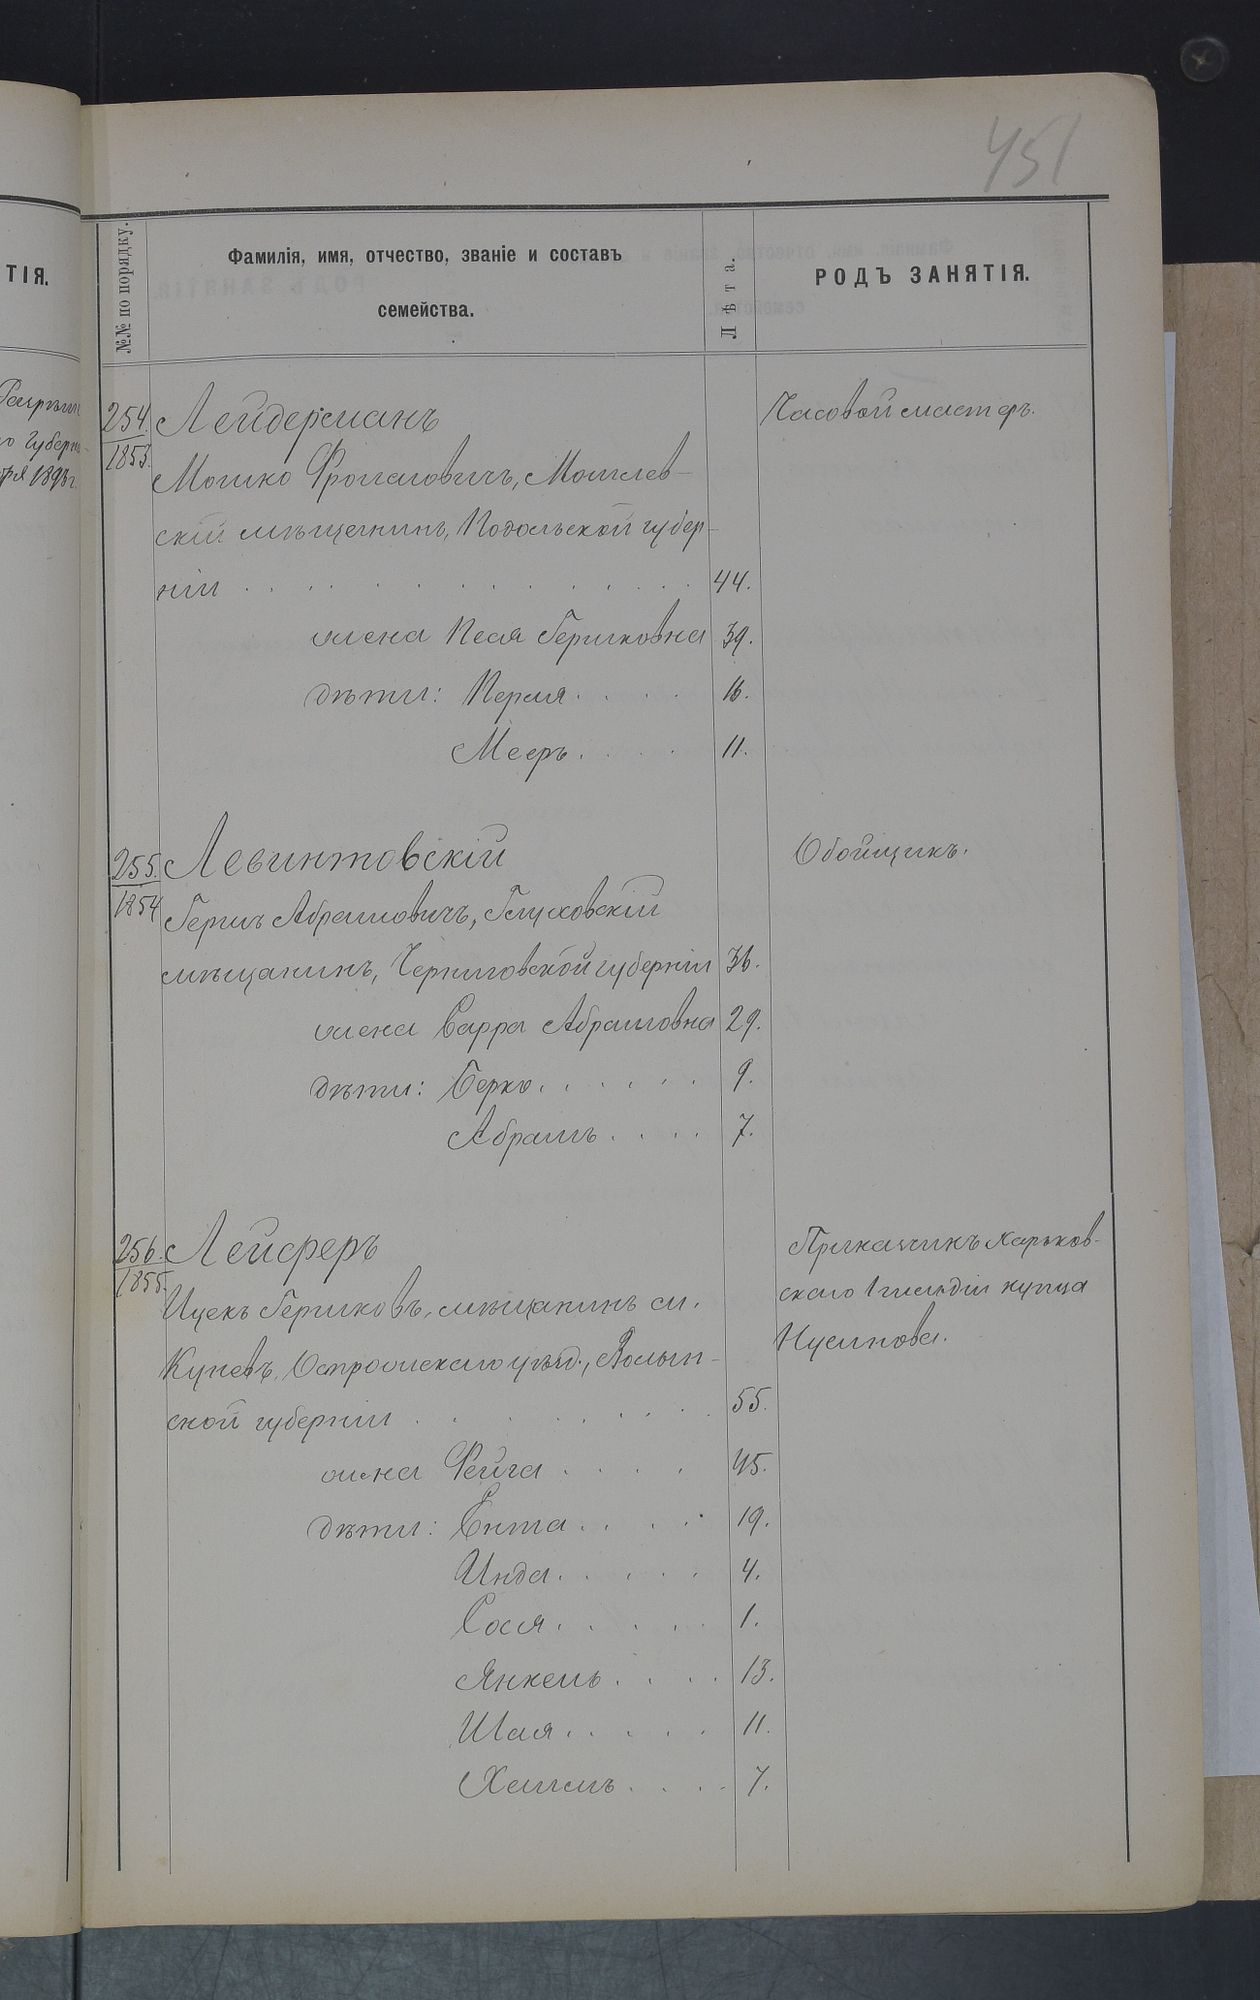 451
№№ по порядку.
Фамилія, имя, отчество, званіе и составъ
семейства.
Лѣта.
РОДЪ ЗАНЯТІЯ.
ТІЯ.
254.
1853.
Лейдерманъ
Часовой мастеръ.
Мошко Фроимовичъ, Могилев-
скій мѣщанинъ, Подольской губер-
ніи . . . . . . . . . . 44.
жена Песя Гершковна 39.
дѣти: Перля . . . . 16.
Мееръ . . . . 11.
255.
1854
Левинтовскій
Обойщикъ.
Гершъ Абрамовичъ, Глуховскій
мѣщанинъ, Черниговской губерніи 36.
жена Сарра Абрамовна 29.
дѣти: Берко . . . . . . 9.
Абрамъ . . . . 7.
256.
1855.
Лейферъ
Прикащикъ Харьков-
скаго 1 гильдіи купца
Ицекъ Гершковъ, мѣщанинъ м.
Куневъ, Острожскаго уѣзд., Волын-
ской губерніи . . . . . . . . 55.
жена Фейга . . . . 45.
дѣти: Ента . . . . 19.
Инда . . . . . 4.
Сося . . . . . 1.
Янкель . . . . 13.
Шая . . . . . 11.
Хаимъ . . . . 7.